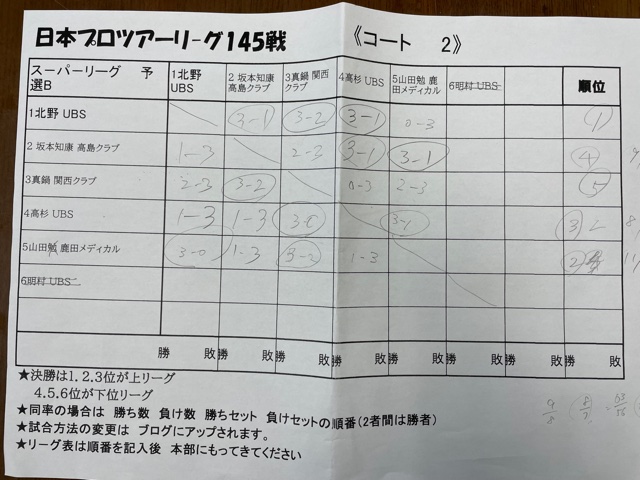 日本プロツアーリ－グ145戦　《コート　2》
スーパーリーグ　予選B　1北野 UBS　2 坂本知康 高島クラブ　3真鍋 関西クラブ　4高杉 UBS　5山田勉 鹿田メディカル　6明村 UBS　順位
1北野 UBS　3-1　3-2　3-1　0-3　1
2 坂本知康 高島クラブ　1-3　2-3　3-1　3-1　4
3真鍋 関西クラブ　2-3　3-2　0-3　2-3　5
4高杉 UBS　1-3　1-3　3-0　3-1　3
5山田勉 鹿田メディカル　3-0　1-3　3-2　1-3　2
6明村 UBS
勝　敗　勝　敗　勝　敗　勝　敗　勝　敗　勝　敗　勝　敗　勝　敗
★決勝は1. 2. 3位が上リーグ
4. 5. 6位が下位リーグ
★同率の場合は 勝ち数 負け数 勝ちセット 負けセットの順番(2者間は勝者)
★試合方法の変更は ブログにアップされます。
★リーグ表は順番を記入後 本部にもってきてください